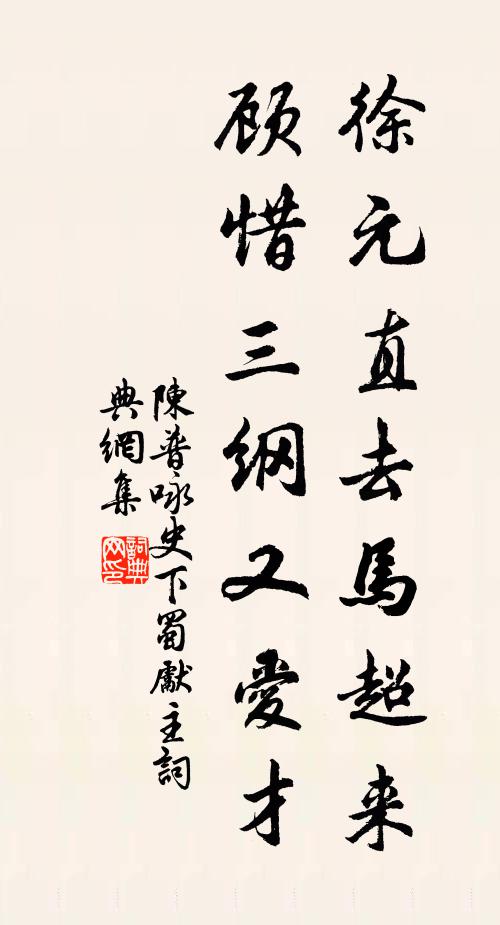 徐元直去馬超来
顾惜三纲又愛才
陳普咏史下蜀獻主詞
典網集
詞典网印